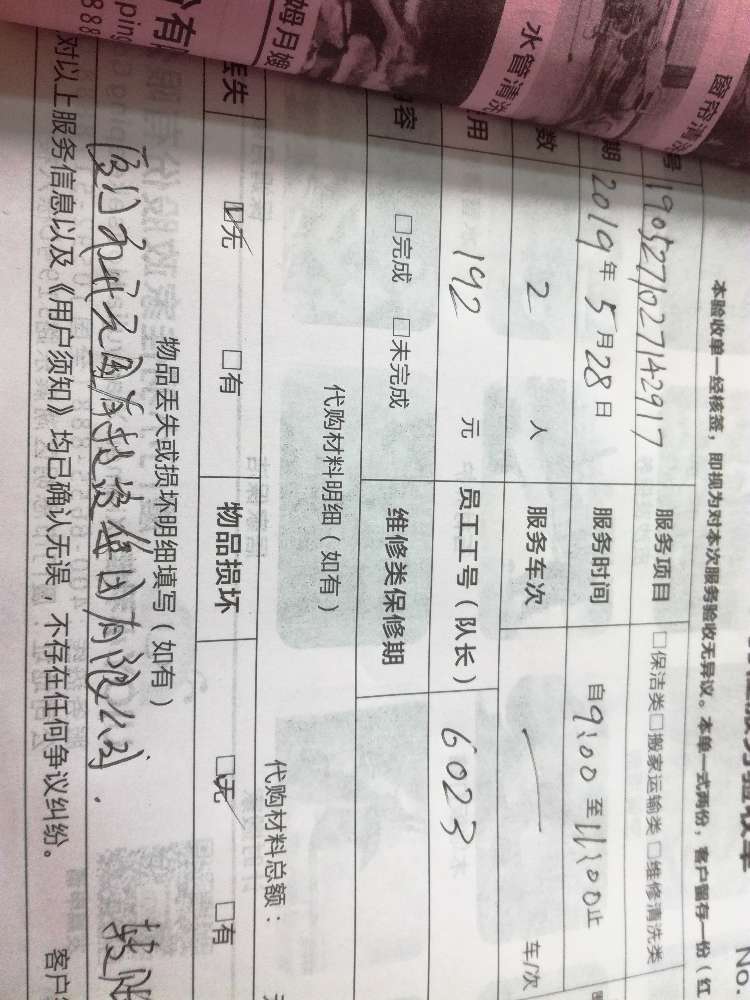 水管清洗
窗帘清洗
姆月嫂
888
服务验收单
No.
本验收单一经核签，即视为对本次服务验收无异议。本单一式两份，客户留存一份（红
号 1905271027142917 服务项目 □保洁类□搬家运输类 □维修清洗类
期 2019年5月28日 服务时间 自9:00至11:00止
数 2 人 服务车次 — 车/次
用 192 元 员工工号（队长） 6023
内容 □完成 □未完成 维修类保修期
代购材料明细（如有） 代购材料总额：
丢失 ☑无 □有 物品损坏 ☑无 □有
物品丢失或损坏明细填写（如有）
有限公司.
对以上服务信息以及《用户须知》均已确认无误，不存在任何争议纠纷。 客户